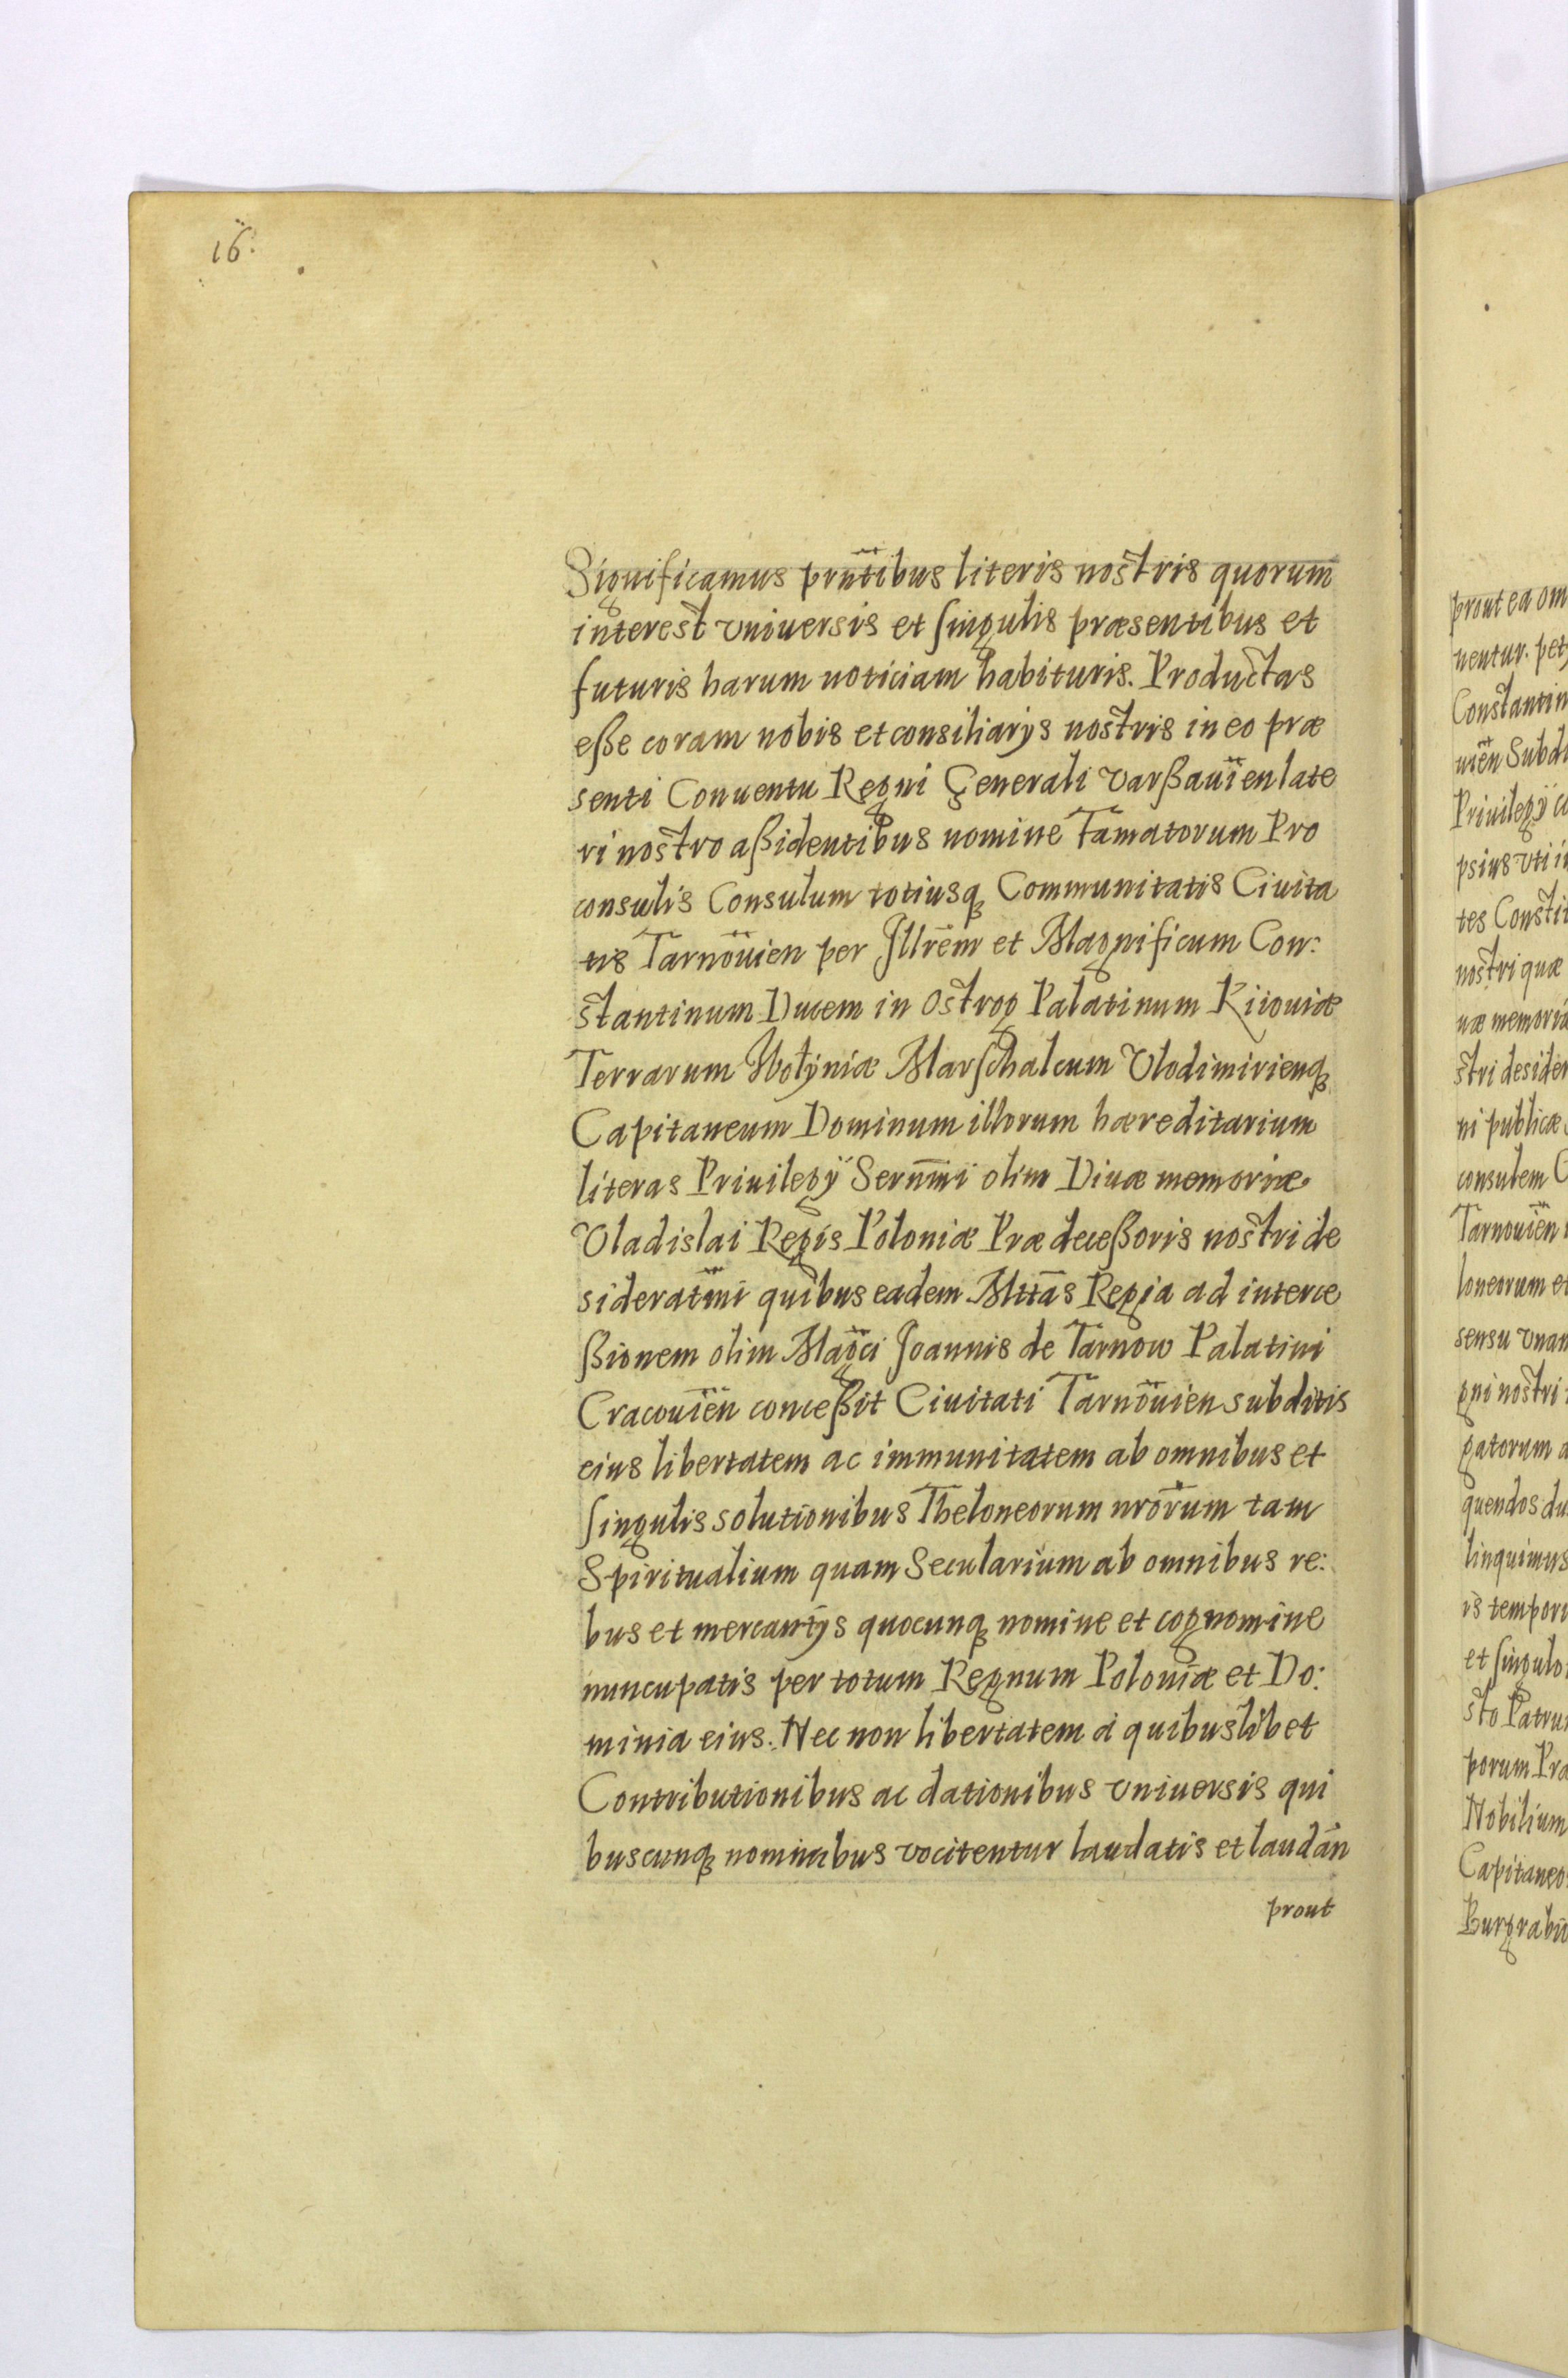 16.
Significamus prñtibus literis nostris quorum
interest vniuersis et singulis præsentibus et
futuris harum noticiam habituris. Productas
eße coram nobis et consiliarÿs nostris in eo præ
senti Conuentu Regni Generali Varßauien late
ri nostro aßidentibus nomine Famatorum Pro
consulis Consulum totiusq Communitatis Ciuita
tis Tarnouien per Illrem et Magnificum Con:
stantinum Ducem in Ostrog Palatinum Kiiouiæ
Terrarum Wołyniæ Marschalcum Vlodimirienq
Capitaneum Dominum illorum hæreditarium
literas Priuilegÿ Sernmi olim Diuæ memoriæ
Vladislai Regis Poloniæ Prædeceßoris nostri de
sideratmi quibus eadem Mttas Regia ad interce
ßionem olim Magci Joannis de Tarnow Palatini
Cracouien conceßit Ciuitati Tarnouien subditis
eius libertatem ac immunitatem ab omnibus et
singulis solutionibus Theloneorum nrorum tam
Spiritualium quam Secularium ab omnibus re:
bus et mercantÿs quocunq nomine et cognomine
nuncupatis per totum Regnum Poloniæ et Do:
minia eius. Nec non libertatem à quibuslibet
Contributionibus ac dationibus vniuersis qui
buscunq nominibus vocitentur laudatis et laudan
prout
prout ea om
nentur. pet
Constantin
uien Subdi
Priuilegÿ co
psius vti i
tes Constit
nostri quæ
næ memoriæ
stri desider
ni publicæ
consulem C
Tarnouien
loneorum et
sensu vnan
gni nostri
gatorum a
quendos du
linquimus
is tempori
et singulo
sto Patrum
porum Præ
Nobilium
Capitaneo
Burgrabi